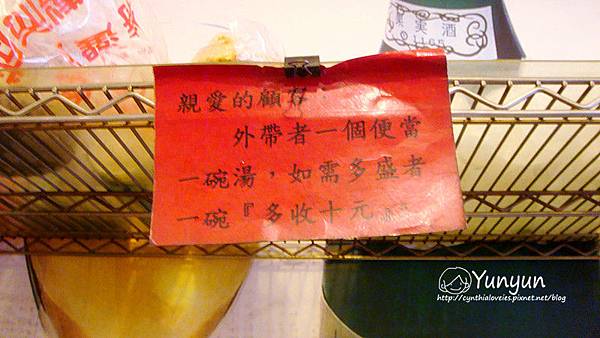 果實酒
1105
親愛的顧客
外帶者一個便當
一碗湯，如需多盛者
一碗『多收十元』
Yunyun
http://cynthialoveies.pixnet.net/blog